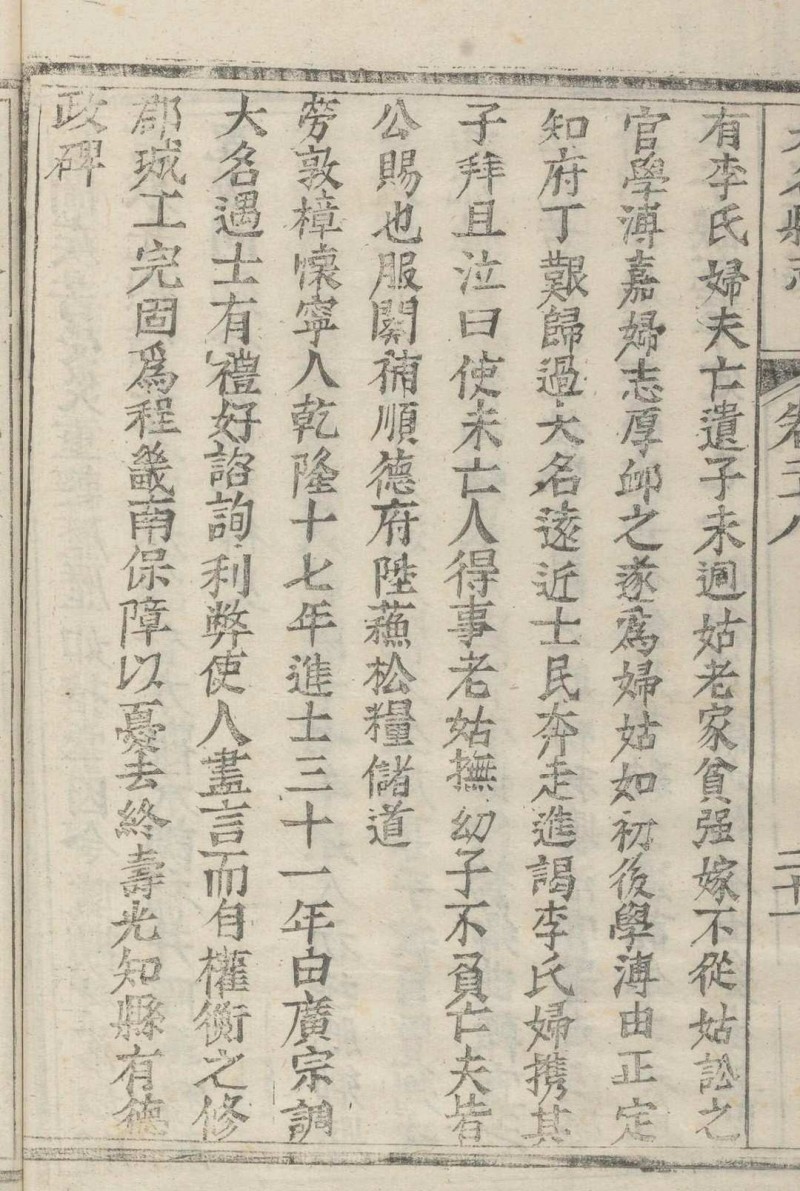 大名縣志
卷十八
二十一
有李氏婦夫亡遺子未週姑老家貧强嫁不從姑訟之
官學溥嘉婦志厚邺之遂爲婦姑如初後學溥由正定
知府丁艱歸過大名遠近士民奔走進謁李氏婦携其
子拜且泣曰使未亡人得事老姑撫幼子不負亡夫皆
公賜也服闋補順德府陞蘓松糧儲道
勞敦樟懷寧人乾隆十七年進士三十一年由廣宗調
大名遇士有禮好諮詢利弊使人盡言而自權衡之修
郡城工完固爲程畿南保障以憂去終壽光知縣有德
政碑